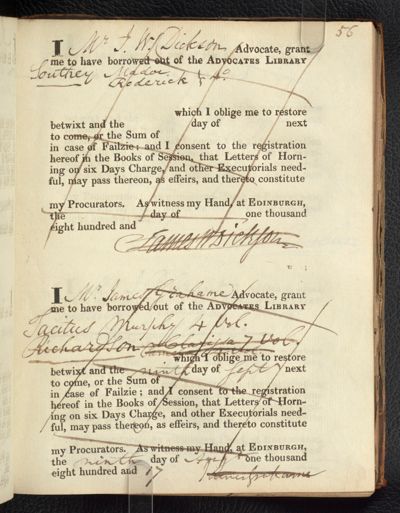 56
I Mr J. W. Dickson Advocate, grant
me to have borrowed out of the ADVOCATES LIBRARY
Southey Madoc
Roderick 4o
which I oblige me to restore
betwixt and the day of next
to come, or the Sum of
in case of Failzie; and I consent to the registration
hereof in the Books of Session, that Letters of Horn-
ing on six Days Charge, and other Executorials need-
ful, may pass thereon, as effeirs, and thereto constitute
my Procurators. As witness my Hand, at EDINBURGH,
the day of one thousand
eight hundred and
James W Dickson
I Mr James Grahame Advocate, grant
me to have borrowed out of the ADVOCATES LIBRARY
Tacitus Murphy 4 Vol.
Richardson 7 Vol.
which I oblige me to restore
betwixt and the ninth day of Sept next
to come, or the Sum of
in case of Failzie; and I consent to the registration
hereof in the Books of Session, that Letters of Horn-
ing on six Days Charge, and other Executorials need-
ful, may pass thereon, as effeirs, and thereto constitute
my Procurators. As witness my Hand, at EDINBURGH,
the ninth day of one thousand
eight hundred and 17 James Grahame